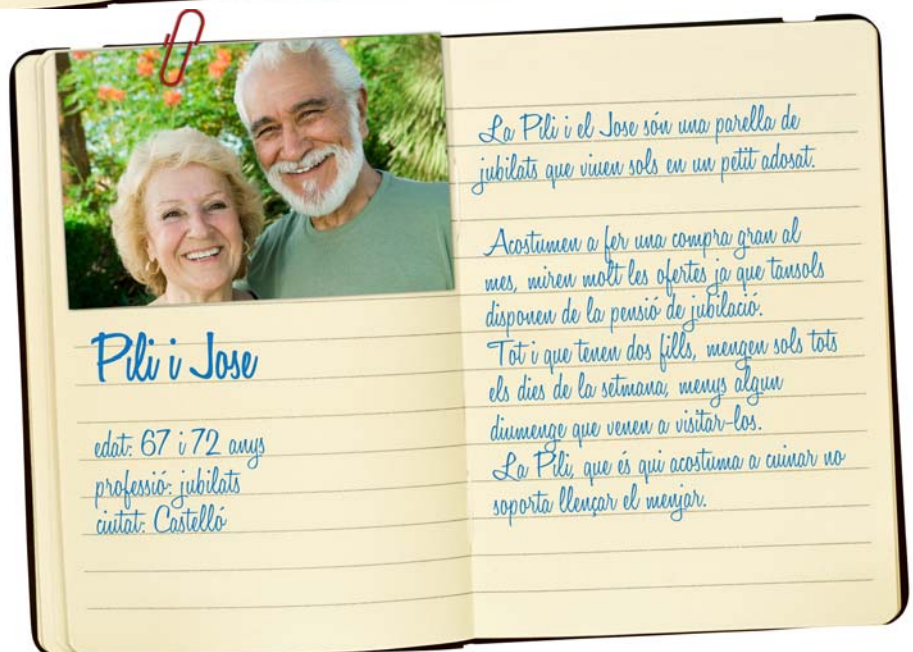 Pili i Jose
edat: 67 i 72 anys
professió: jubilats
ciutat: Castelló
La Pili i el Jose són una parella de
jubilats que viuen sols en un petit adosat.
Acostumen a fer una compra gran al
mes, miren molt les ofertes ja que tansols
disponen de la pensió de jubilació.
Tot i que tenen dos fills, mengen sols tots
els dies de la setmana, menys algun
diumenge que venen a visitar-los.
La Pili, que és qui acostuma a cuinar no
soporta llençar el menjar.